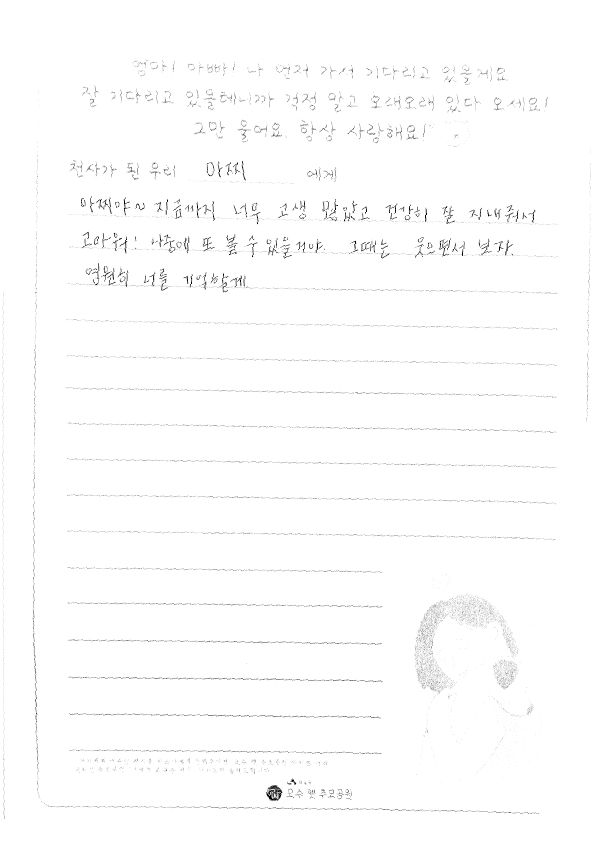 엄마! 아빠! 나 먼저 가서 기다리고 있을게요
잘 기다리고 있을테니까 걱정 말고 오래오래 있다 오세요!
그만 울어요. 항상 사랑해요!
천사가 된 우리 아찌 에게
아찌야~ 지금까지 너무 고생 많았고 건강히 잘 지내줘서
고마워! 나중에 또 볼 수 있을거야. 그때는 웃으면서 보자.
영원히 너를 기억할게
오수 펫 추모공원